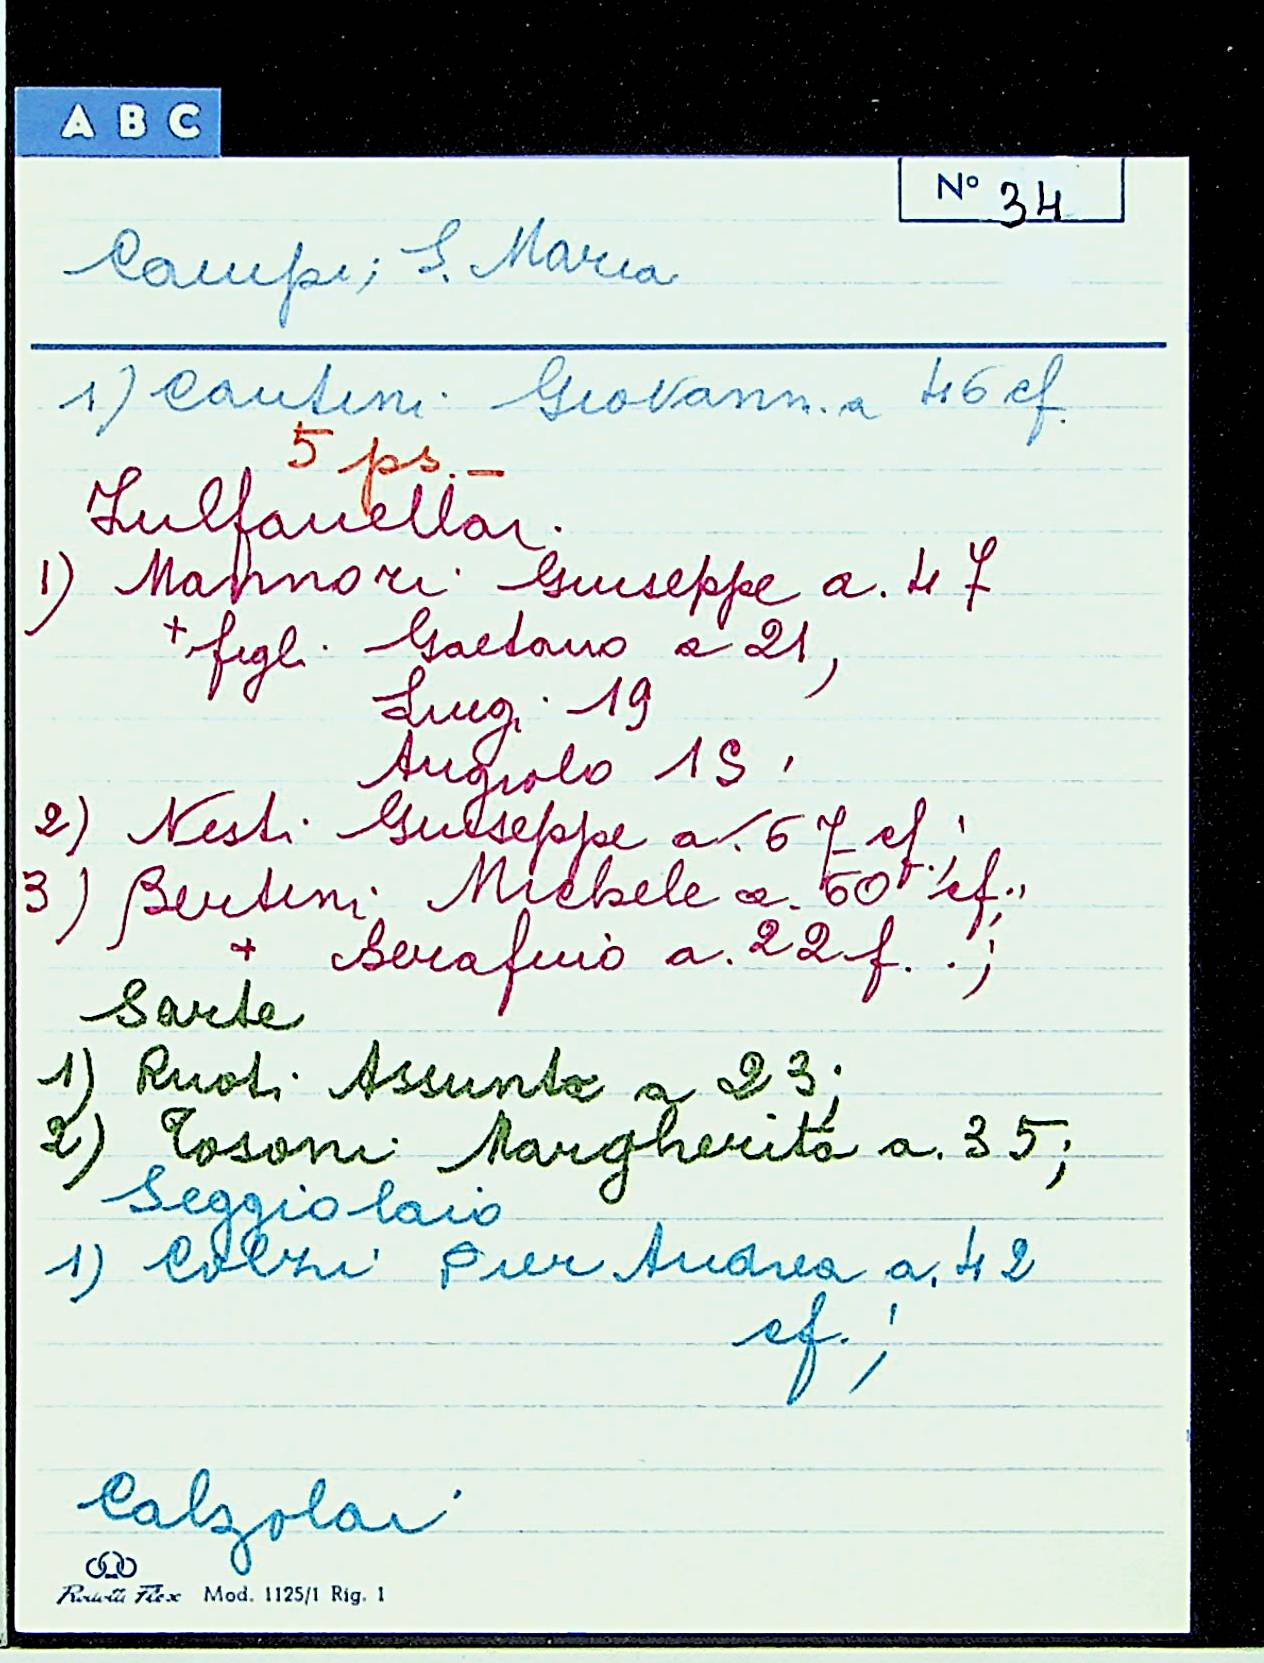 A B C
N° 34
Campi; S. Maria
1) Cantini Giovanni a 46 cf.
5 ps. –
Zulfanellai
1) Mannori Giuseppe a. 47
+ figli Gaetano a 21,
Luigi 19
Angiolo 15;
2) Nesti Giuseppe a. 67 cf.;
3) Bertini Michele a. 60 cf.,
+ Serafino a. 22 f. ;
Sarte
1) Ruoti Assunta a 23;
2) Tosoni Margherita a. 35;
Seggiolaio
1) Colzi Pier Andrea a. 42
cf.;
Calzolai
Mod. 1125/1 Rig. 1